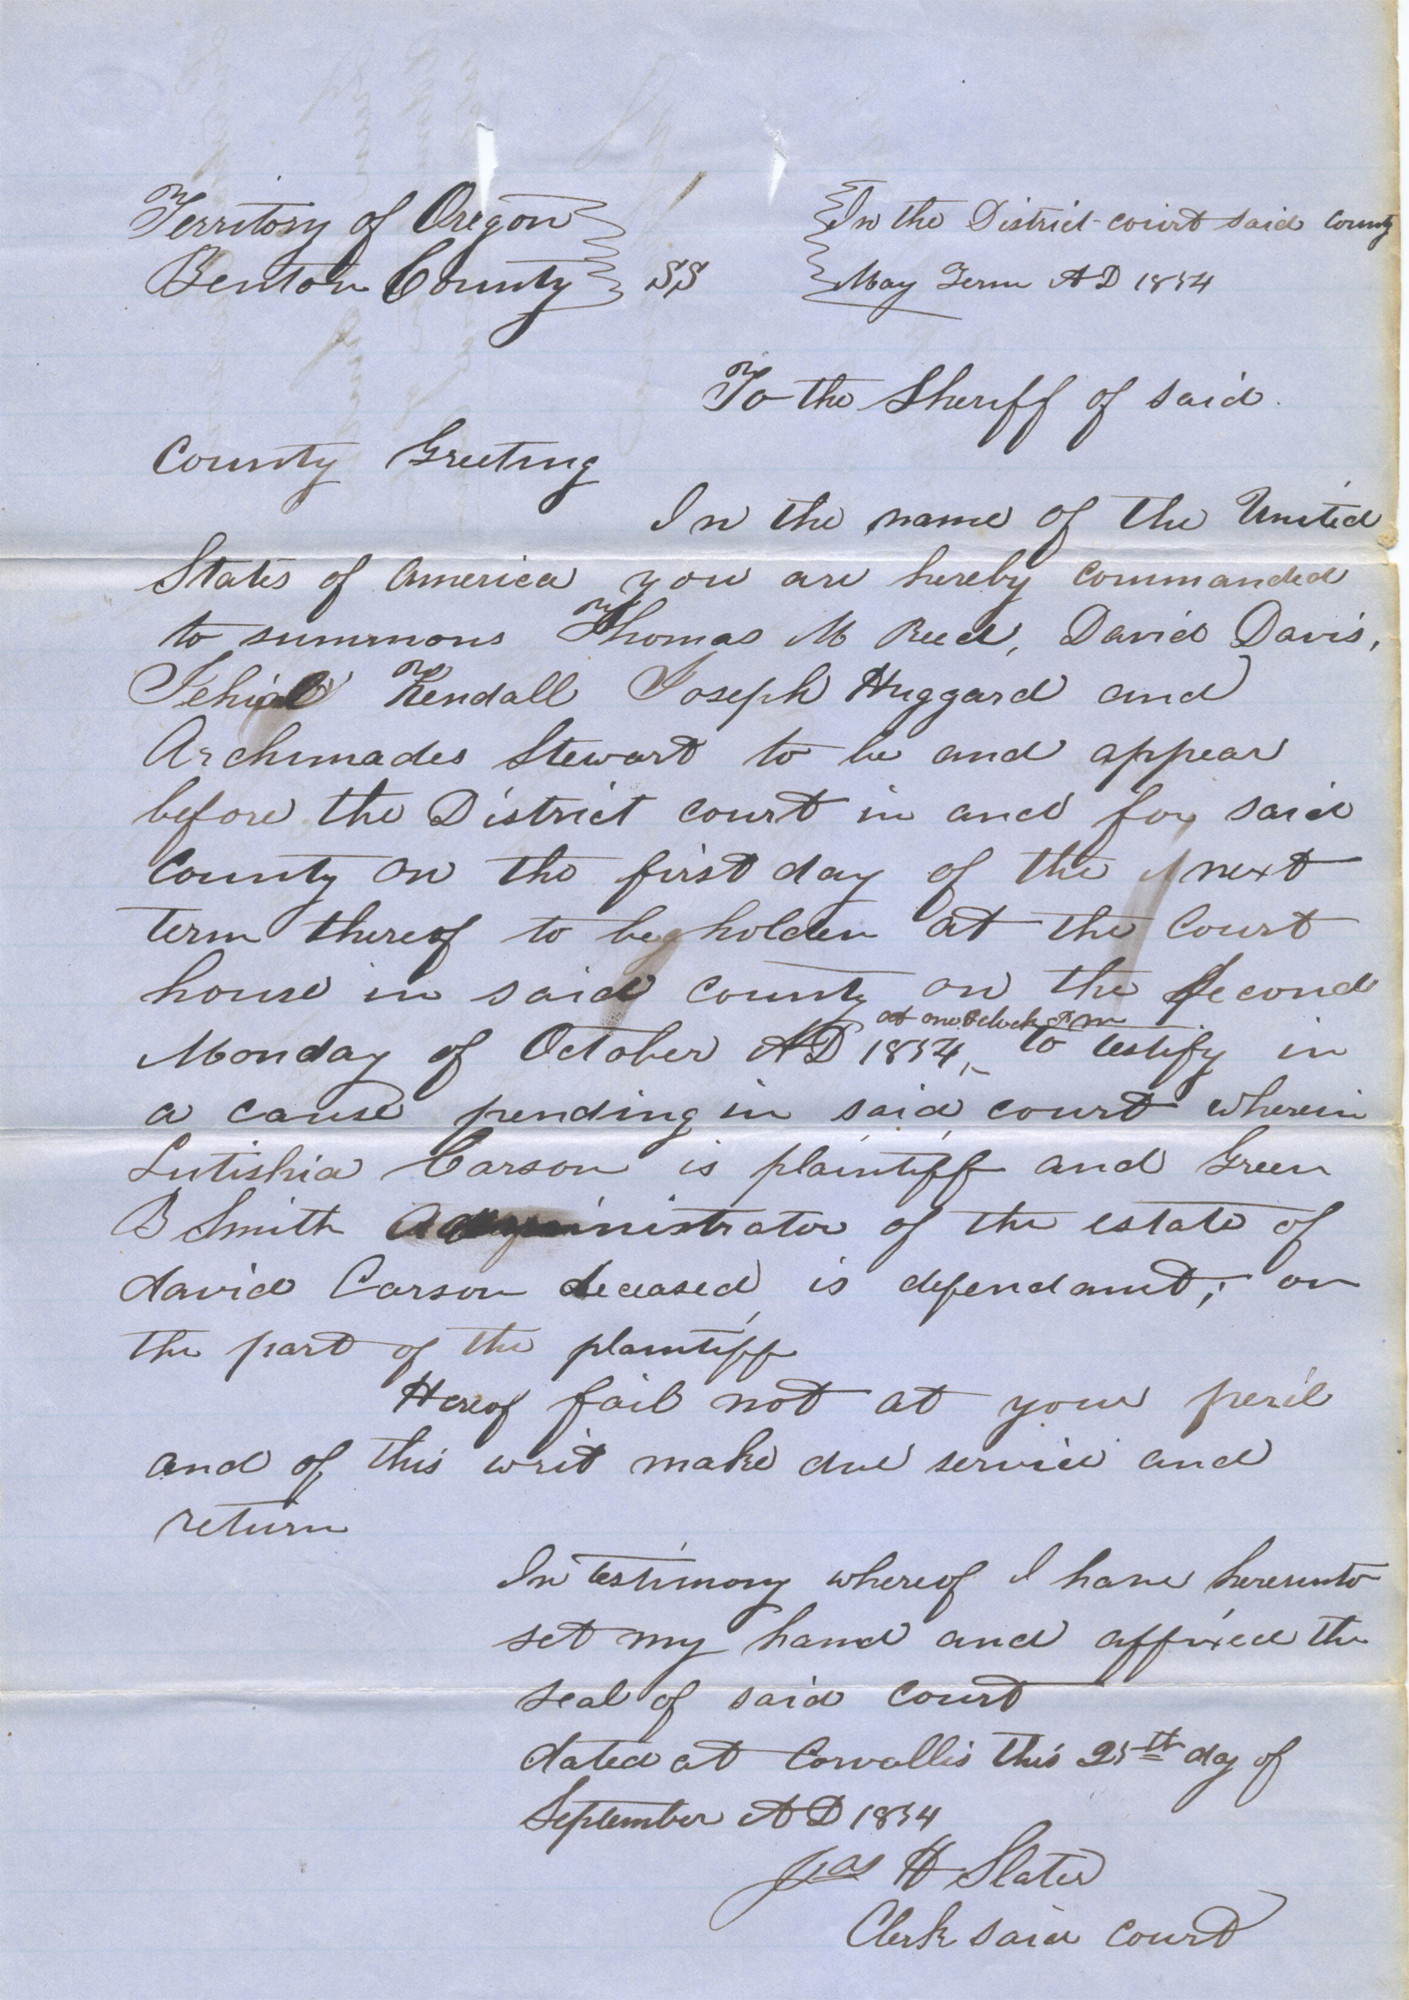 Territory of Oregon
Benton County SS
In the District court said county
May Term AD 1854
To the Sheriff of said
County Greeting
In the name of the United
States of America you are hereby commanded
to summons Thomas M Reed, David Davis,
Jehial Kendall Joseph Huggard and
Archimades Stewart to be and appear
before the District court in and for said
County on the first day of the next
term thereof to be holden at the court
house in said county on the second
at one oclock P m
Monday of October AD 1854, to testify in
a cause pending in said court wherein
Lutishia Carson is plaintiff and Green
B Smith Administrator of the estate of
david Carson deceased, is defendant; on
the part of the plaintiff
Hereof fail not at your peril
and of this writ make due service and
return
In testimony whereof I have hereunto
set my hand and affixed the
seal of said court
dated at Corvallis this 25th day of
September AD 1854
Jas H Slater
Clerk said court